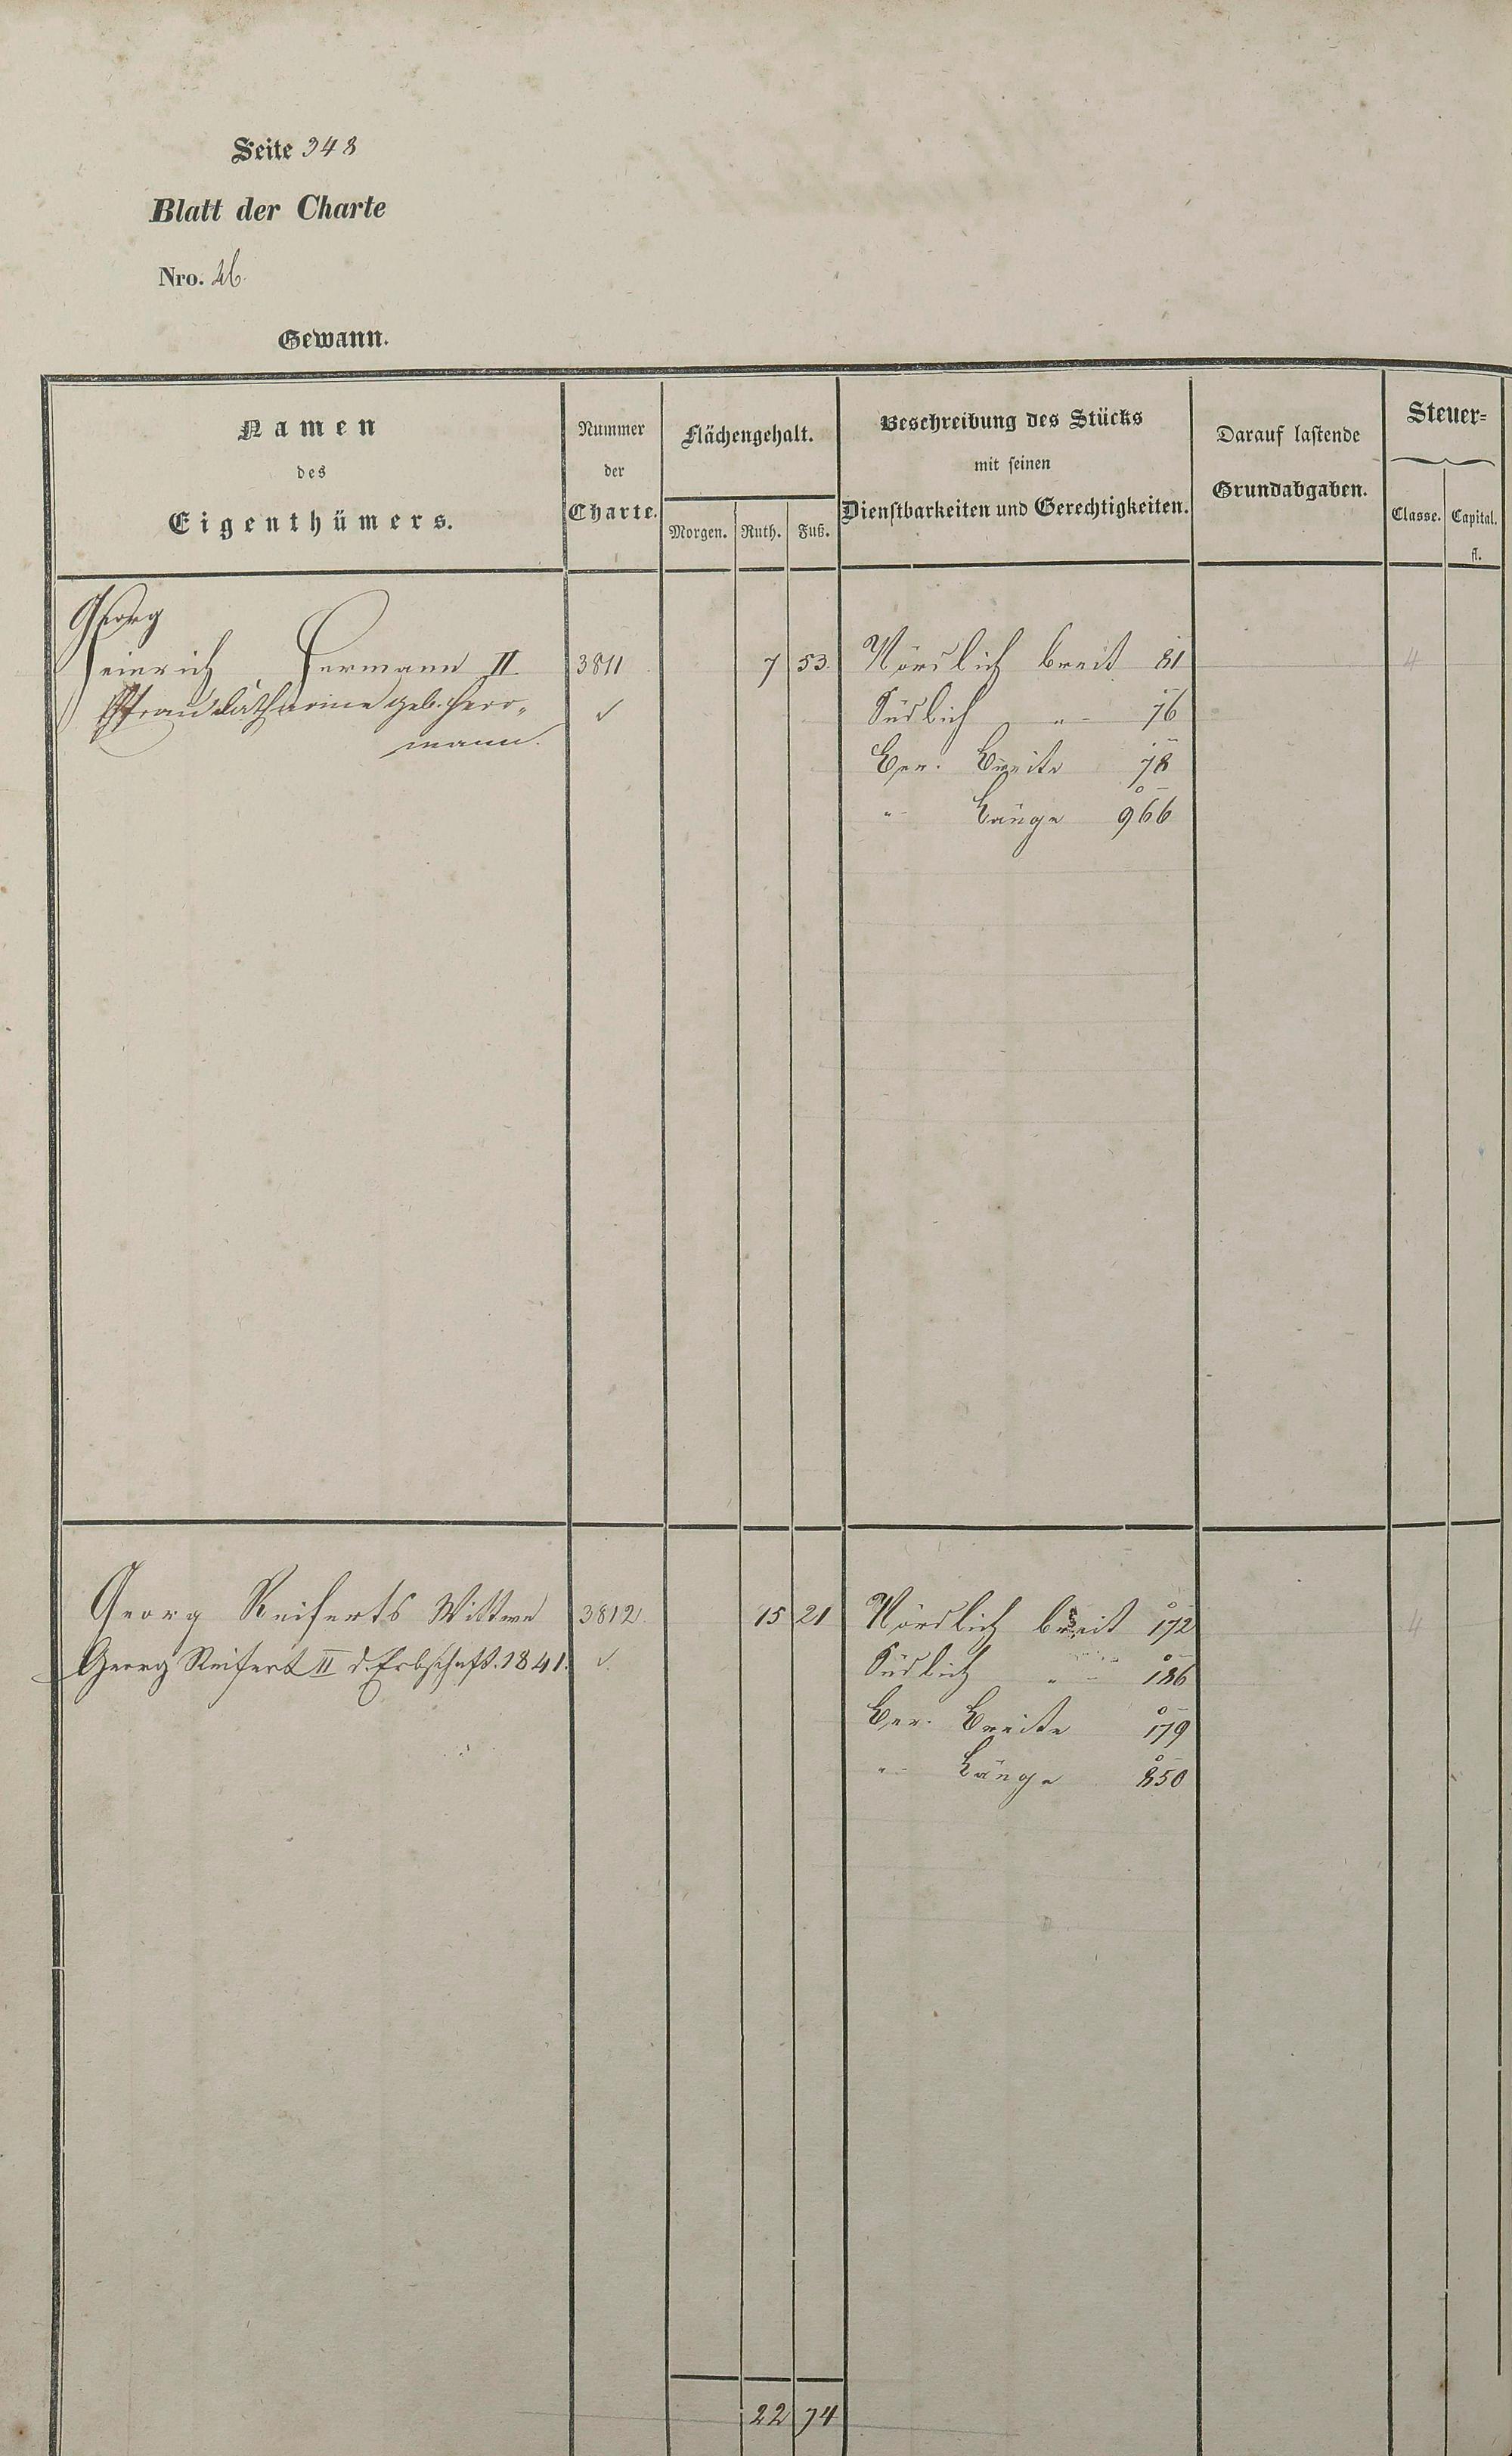 Seite 348
Blatt der Charte
Nro. 26.
Gewann.
Namen
des
Eigenthümers.
Nummer
der
Charte.
Flächengehalt.
Morgen. Ruth. Fuß.
Beschreibung des Stücks
mit seinen
Dienstbarkeiten und Gerechtigkeiten.
Darauf lastende
Grundabgaben.
Steuer=
Classe. Capital.
fl.
Georg
Heinrich Hermann II 3811 7 53 Nördlich breit 81 4
Frau Catharine geb. Herr„ Südlich „ 76
mann. Ber. Breite 78
„ Länge 966
Georg Reiferts Wittwe 3812. 15 21 Nördlich breit 172 4
Georg Reifert II d. Erbschaft. 1841. Südlich „ 186
Ber. Breite 179
„ Länge 850
22 74